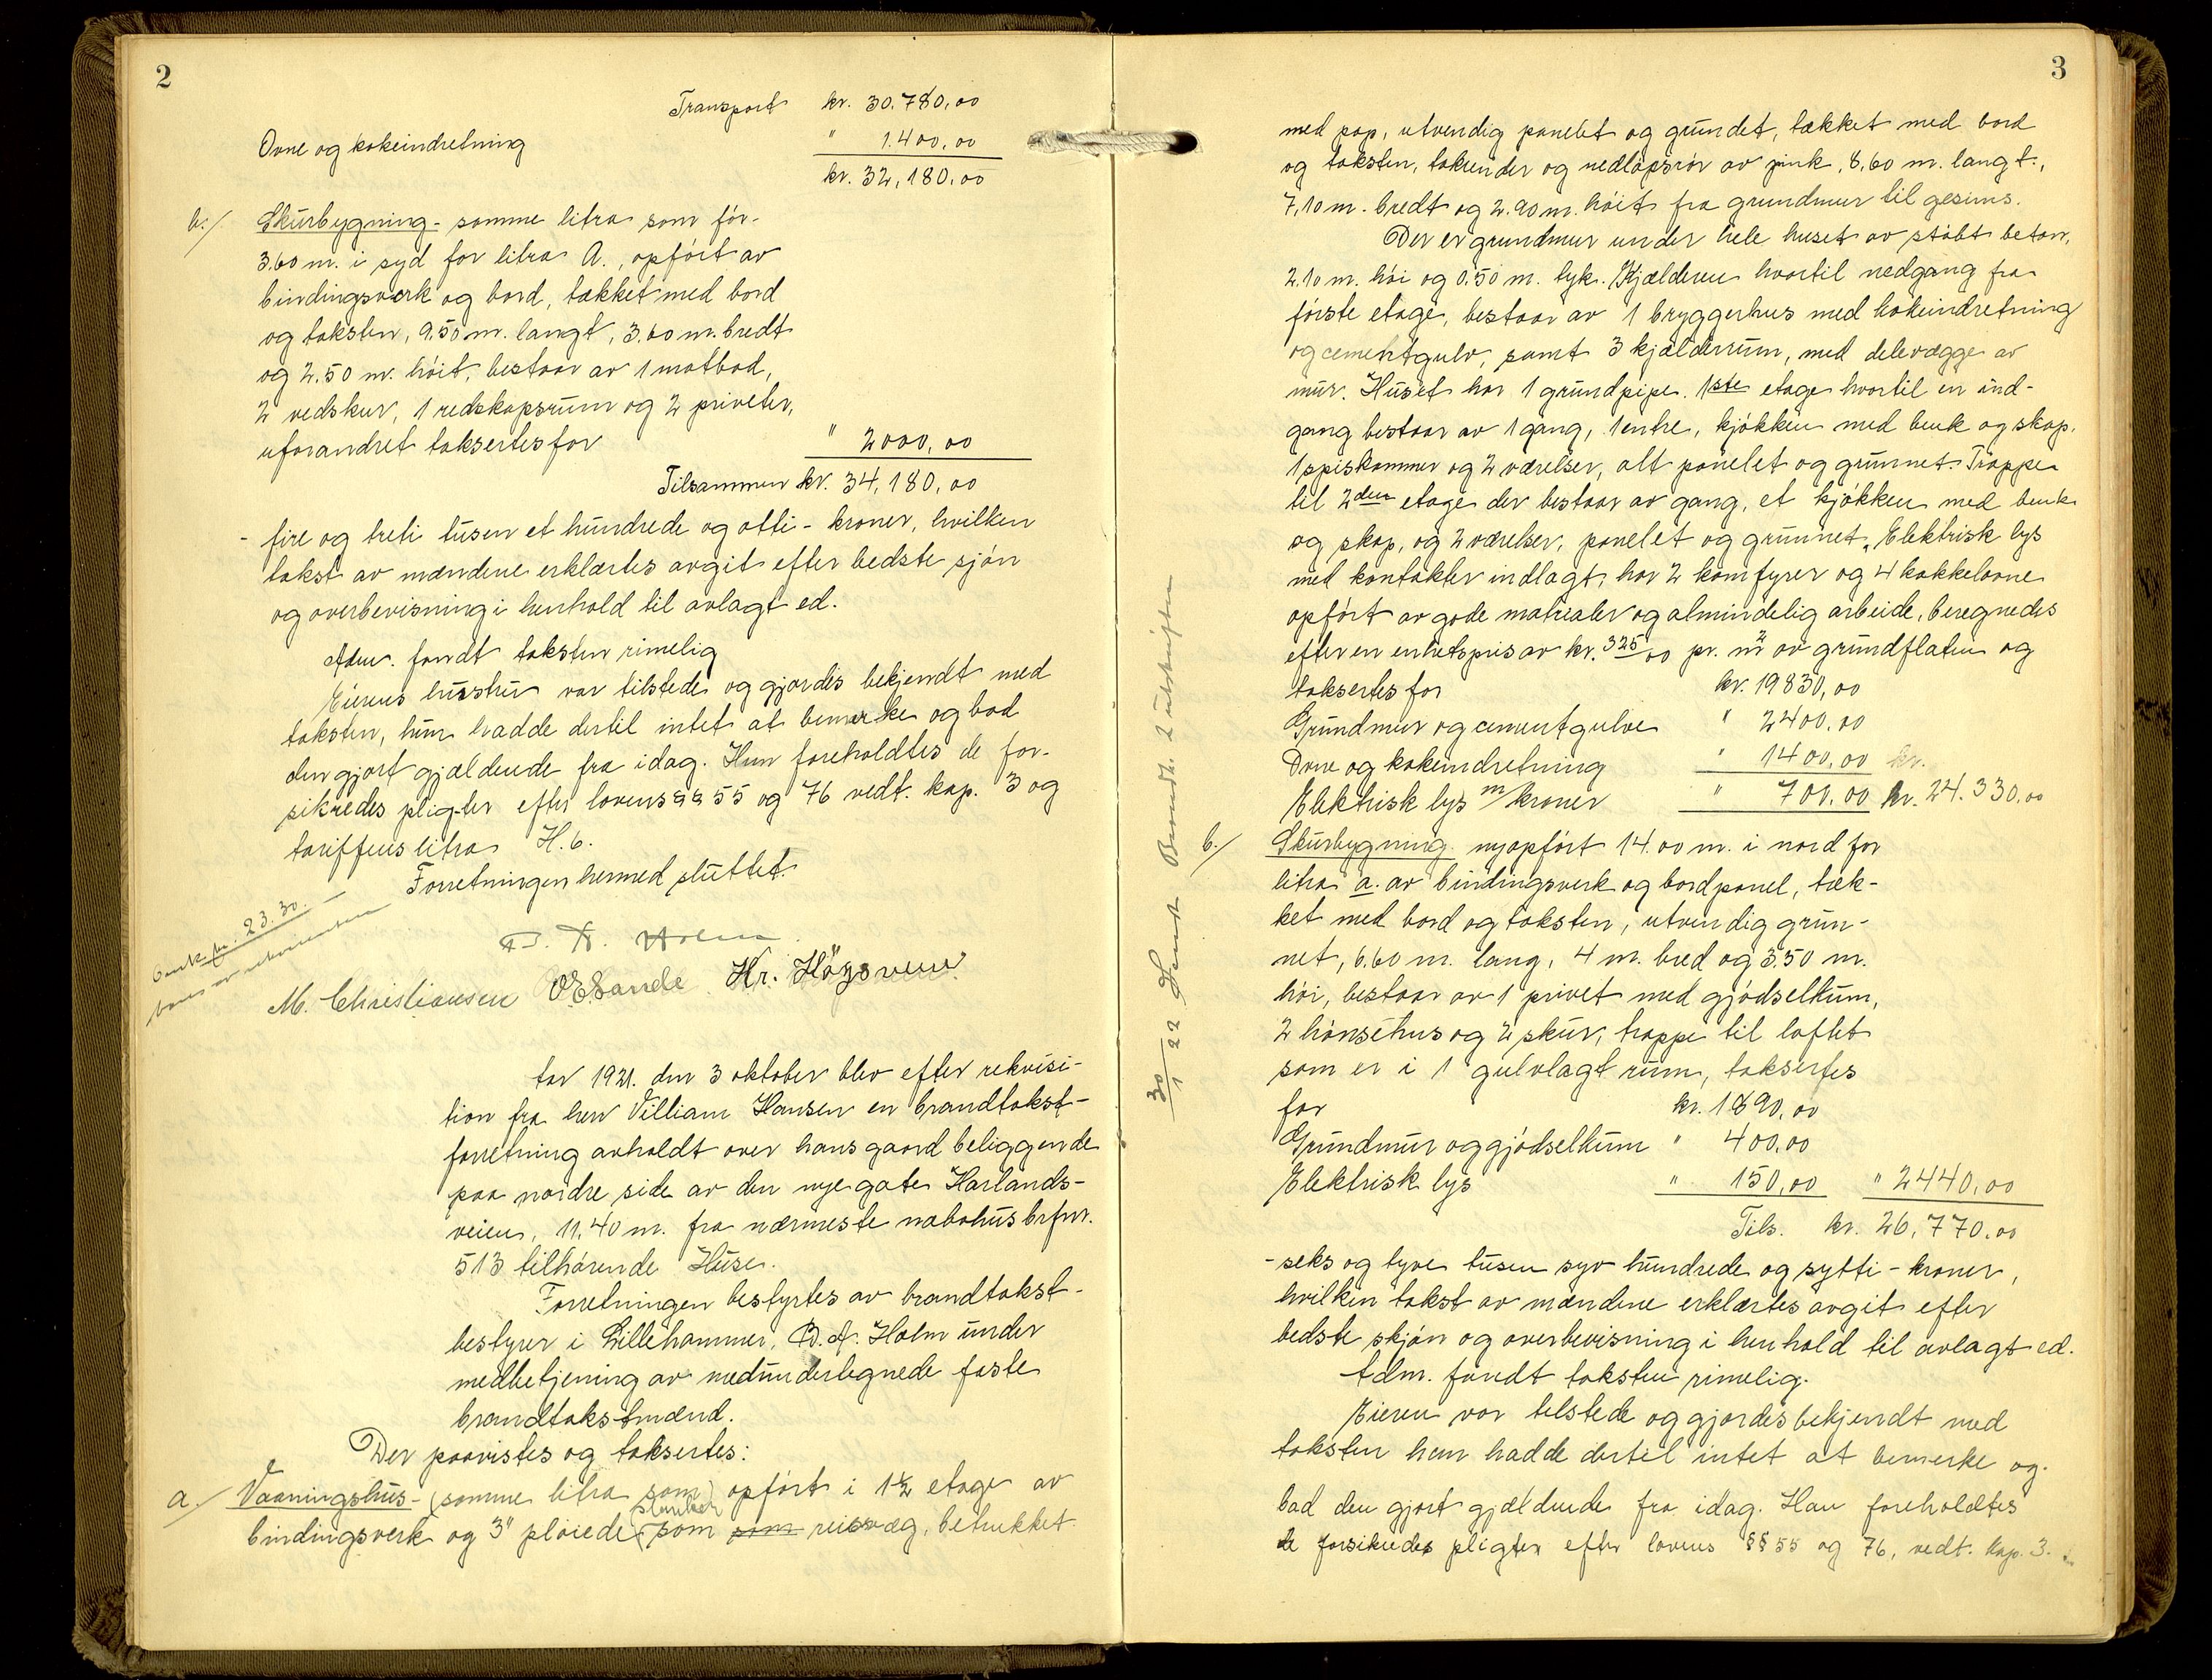 2
Transport kr. 30.780,00
Ovne og kokeindretning " 1.400,00
kr. 32,180,00
b./ Skurbygning - samme litra som før-
3.60 m. i syd for litra A., opført av
bindingsverk og bord, tækket med bord
og taksten, 9.50 m. langt, 3.60 m. bredt
og 2.50 m. høit, bestaar av 1 matbod,
2 vedskur, 1 redskapsrum og 2 priveter,
uforandret taksertes for " 2000,00
Tilsammen kr. 34,180,00
- fire og treti tusen et hundrede og otti - kroner, hvilken
takst av mændene erklærtes avgit efter bedste sjøn
og overbevisning i henhold til avlagt ed.
Adm. fandt taksten rimelig
Eierens hustru var tilstede og gjordes bekjendt med
taksten, hun hadde dertil intet at bemerke og bad
den gjort gjældende fra idag. Hun foreholdtes de for-
sikredes pligter efter lovens §§ 55 og 76 vedt. kap. 3 og
tariffens litra H. 6.
Forretningen hermed sluttet.
23.30.
Holm
M. Christiansen O E Sande Kr. Högsveen
Aar 1921. den 3 oktober blev efter rekvisi-
tion fra herr Villiam Hansen en brandtakst-
forretning avholdt over hans gaard beliggende
paa nordre side av den nye gate Harlands-
veien, 11,40 m. fra nærmeste nabohus brfnr.
513 tilhørende Huse.
Forretningen bestyrtes av brandtakst-
bestyrer i Lillehammer, B. A. Holm under
medbetjening av medundertegnede faste
brandtakstmænd.
Der paavistes og taksertes:
a./ Vaaningshus - (samme litra som) opført i 1½ etage av
planker
bindingsverk og 3" pløiede som som reisvæg, betrukket
3
med pap, utvendig panelet og grundet, tækket med bord
og taksten, takrender og nedløpsrør av zink, 8,60 m. langt,
7,10 m. bredt og 2.90 m. høit fra grundmur til gesims.
Der er grundmur under hele huset av støbt beton,
2.10 m. høi og 0.50 m. tyk. Kjælderen hvortil nedgang fra
første etage, bestaar av 1 bryggerhus med kokeindretning
og cementgulv, samt 3 kjælderrum, med delevægge av
mur. Huset har 1 grundpipe. 1ste etage hvortil en ind-
gang bestaar av 1 gang, 1 entre, kjøkken med benk og skap,
1 spiskammer og 2 værelser, alt panelet og grunnet. Trappe
til 2den etage der bestaar av gang, et kjøkken med benk
og skap, og 2 værelser, panelet og grunnet. Elektrisk lys
med kontakter indlagt, har 2 komfyrer og 4 kakkelovne
opført av gode matrialer og almindelig arbeide, beregnedes
efter en enhetspris av kr. 325,00 pr. m² av grundflaten og
taksertes for kr. 19830,00
Grundmur og cementgulve " 2400,00
Ovne og kokeindretning " 1400,00 kr.
Elektrisk lys m/kroner " 700.00 kr. 24.330,00
b./ Skurbygning nyopført 14.00 m. i nord for
litra a. av bindingsverk og bordpanel, tæk-
ket med bord og taksten, utvendig grun-
net, 6.60 m. lang, 4 m. bred og 3.50 m.
høi, bestaar av 1 privet med gjødselkum,
2 hønsehus og 2 skur, trappe til loftet
som er i 1 gulvlagt rum, taksertes
for kr. 1890,00
Grundmur og gjødselkum " 400,00
Elektrisk lys " 150,00 " 2440,00
Tils. kr. 26,770.00
- seks og tyve tusen syv hundrede og sytti - kroner,
hvilken takst av mændene erklærtes avgit efter
bedste skjøn og overbevisning i henhold til avlagt ed.
Adm. fandt taksten rimelig.
Eieren var tilstede og gjordes bekjendt med
taksten han hadde dertil intet at bemerke og
bad den gjort gjældende fra idag. Han foreholdtes
de forsikredes pligter efter lovens §§ 55 og 76, vedt. kap. 3.
30/1 22 Sendt 2 utskrifter